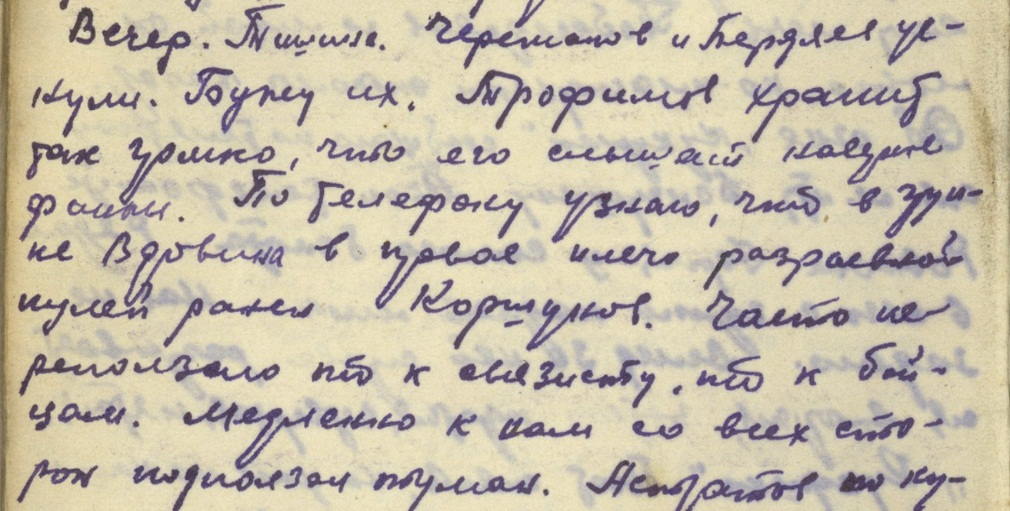 Вечер. Тишина. Черепанов и Бердяев ус-
нули. Бужу их. Трофимов храпит
так громко, что его слышат наверно
фашисты. По телефону узнаю, что в груп-
пе Вдовина в правое плечо разрывной
пулей ранен Коршунов. Часто пе-
реползаю то к связисту, то к бой-
цам. Медленно к нам со всех сто-
рон подползал туман. по ку-